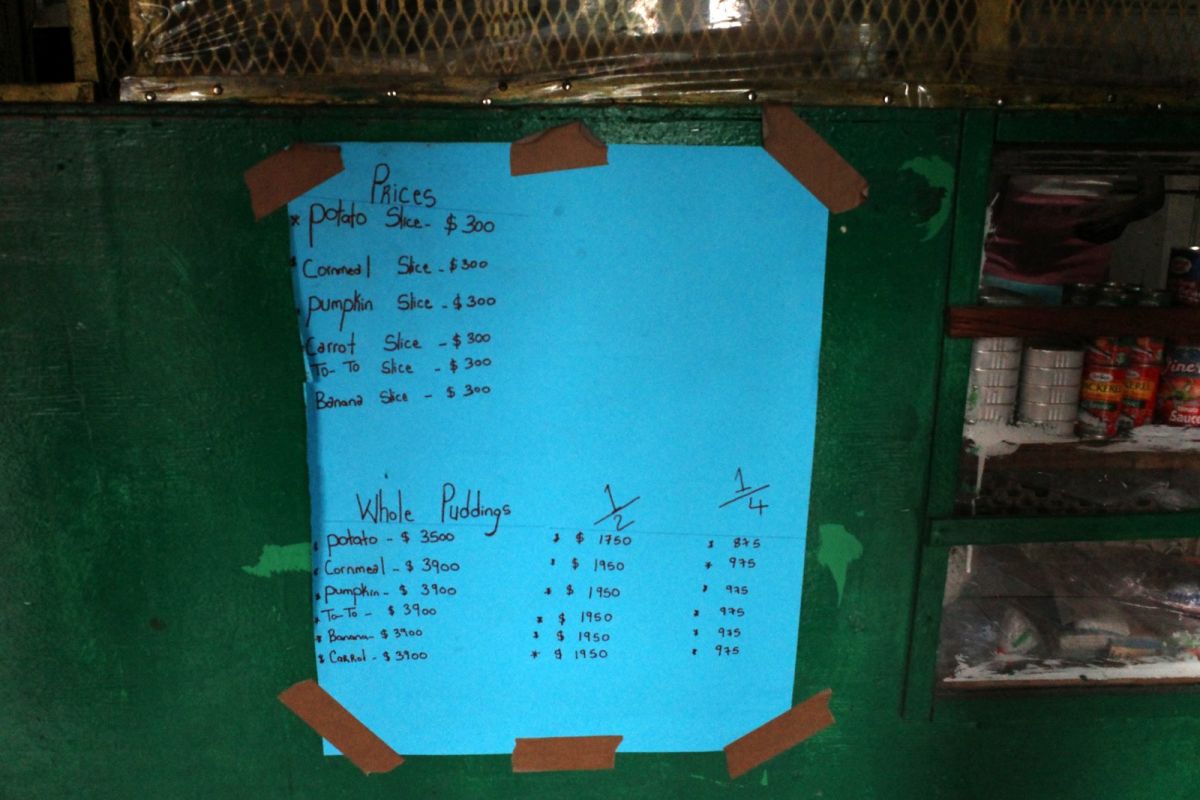 Prices
* Potato Slice - $300
* Cornmeal Slice - $300
Pumpkin Slice - $300
Carrot Slice - $300
To-To Slice - $300
Banana Slice - $300
Whole Puddings 1/2 1/4
* Potato - $3500 * $1750 * 875
* Cornmeal - $3900 * $1950 * 975
* Pumpkin - $3900 * $1950 * 975
* To-To - $3900 * $1950 * 975
* Banana - $3900 * $1950 * 975
* Carrot - $3900 * $1950 * 975